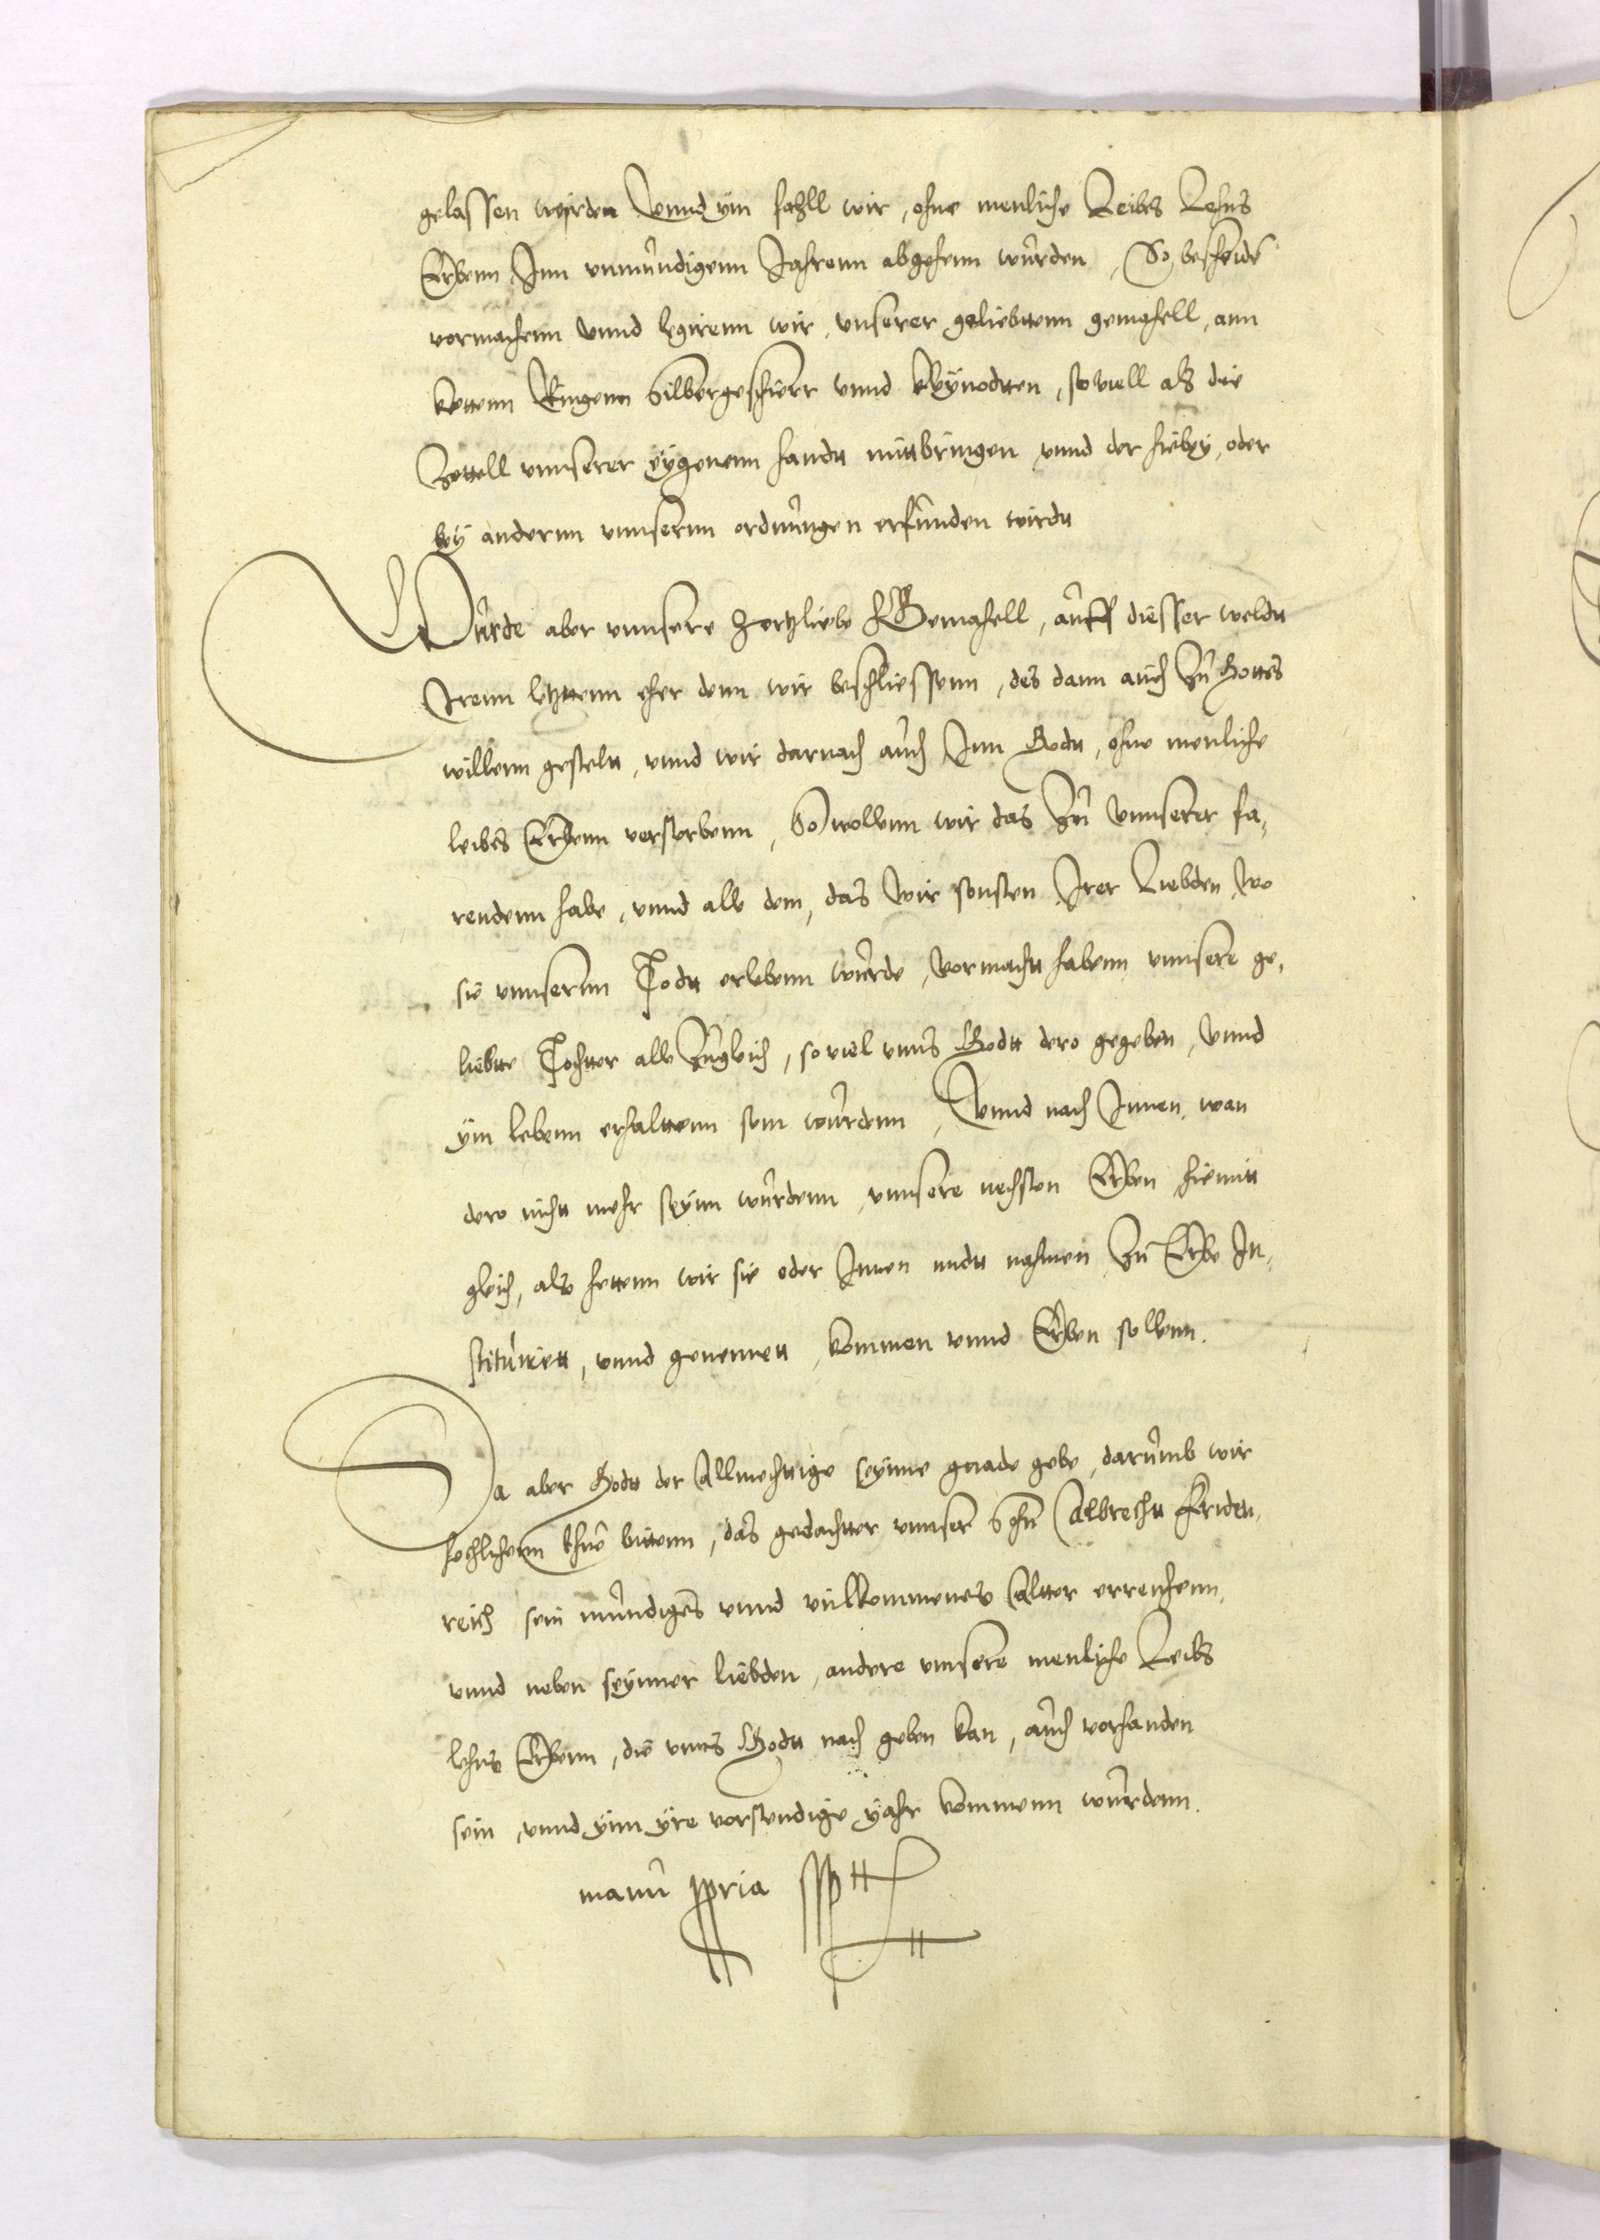 gelassen würden Vnnd ÿm fahll wir, ohne menliche Leibes Lehns
Erbenn Inn vnmündigenn Jahrenn abgehenn würden, So bescheide
vormachenn vnnd legirenn wir, vnserer geliebttenn gemahell, ann
kettenn Ringenn Silbergeschierr vnnd kleÿnodtten, so viell als die
Zettell vnnserer eÿgenenn handtt mittbringen vnnd der hiebeÿ, oder
beÿ andernn vnnsernn ordnüngen erfünden wirdtt
Würde aber vnnsere hertzliebe Gemahell, aüff diesser weldtt
Irenn letzttenn eher denn wir beschliessenn, des dann aüch Zü Gottes
willenn gesteltt, vnnd wir darnach aüch Inn Godtt, ohne menliche
leibes Erbenn versterbenn, So wollenn wir das Zü vnnserer fa,
rendenn habe, vnnd alle dem, das wir sonsten Irer Liebden, wo
sie vnnsernn Todtt erlebenn würde, vormachtt habenn vnnsere ge,
liebtte Tochtter alle Zügleich, so viel vnns Godtt dero gegeben, vnnd
ÿm lebenn erhalttenn sein würdenn, Vnnd nach Innen, wan
dero nichtt mehr seÿnn würdenn, vnnsere nechsten Erben hiemitt
gleich, als hettenn wir sie oder Innen mitt nahmen Zü Erbe In,
stitüirett, vnnd genennett, kommen vnnd Erben sollenn.
Da aber Godtt der Allmechttige seÿnne gnade gebe, darümb wir
hochlichenn thün bittenn, das gedachtter vnnser Sohn Albrechtt Friden,
reich sein mündiges vnnd vulkommenes Altter erreichenn,
vnnd neben seÿnner liebden, andere vnnsere menliche Leibs
lehns Erbenn, die vnns Godtt nach geben kan, aüch vorhanden
sein, vnnd ÿnn ÿre vorstendige ÿahr kommenn würdenn.
manü ppria sspt